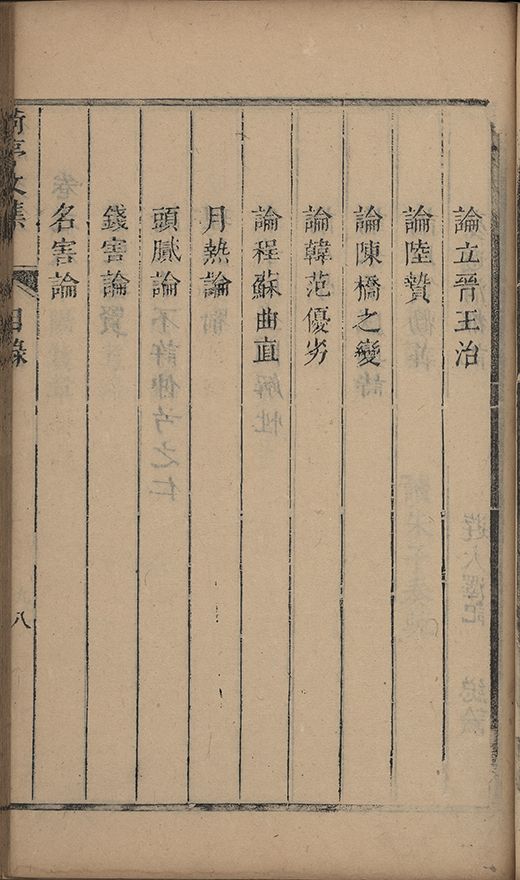 論立晉王治
論陸贄
論陳橋之變
論韓范優劣
論程蘇曲直
月熱論
頭膩論
錢害論
名害論
荷亭文集
目錄
八